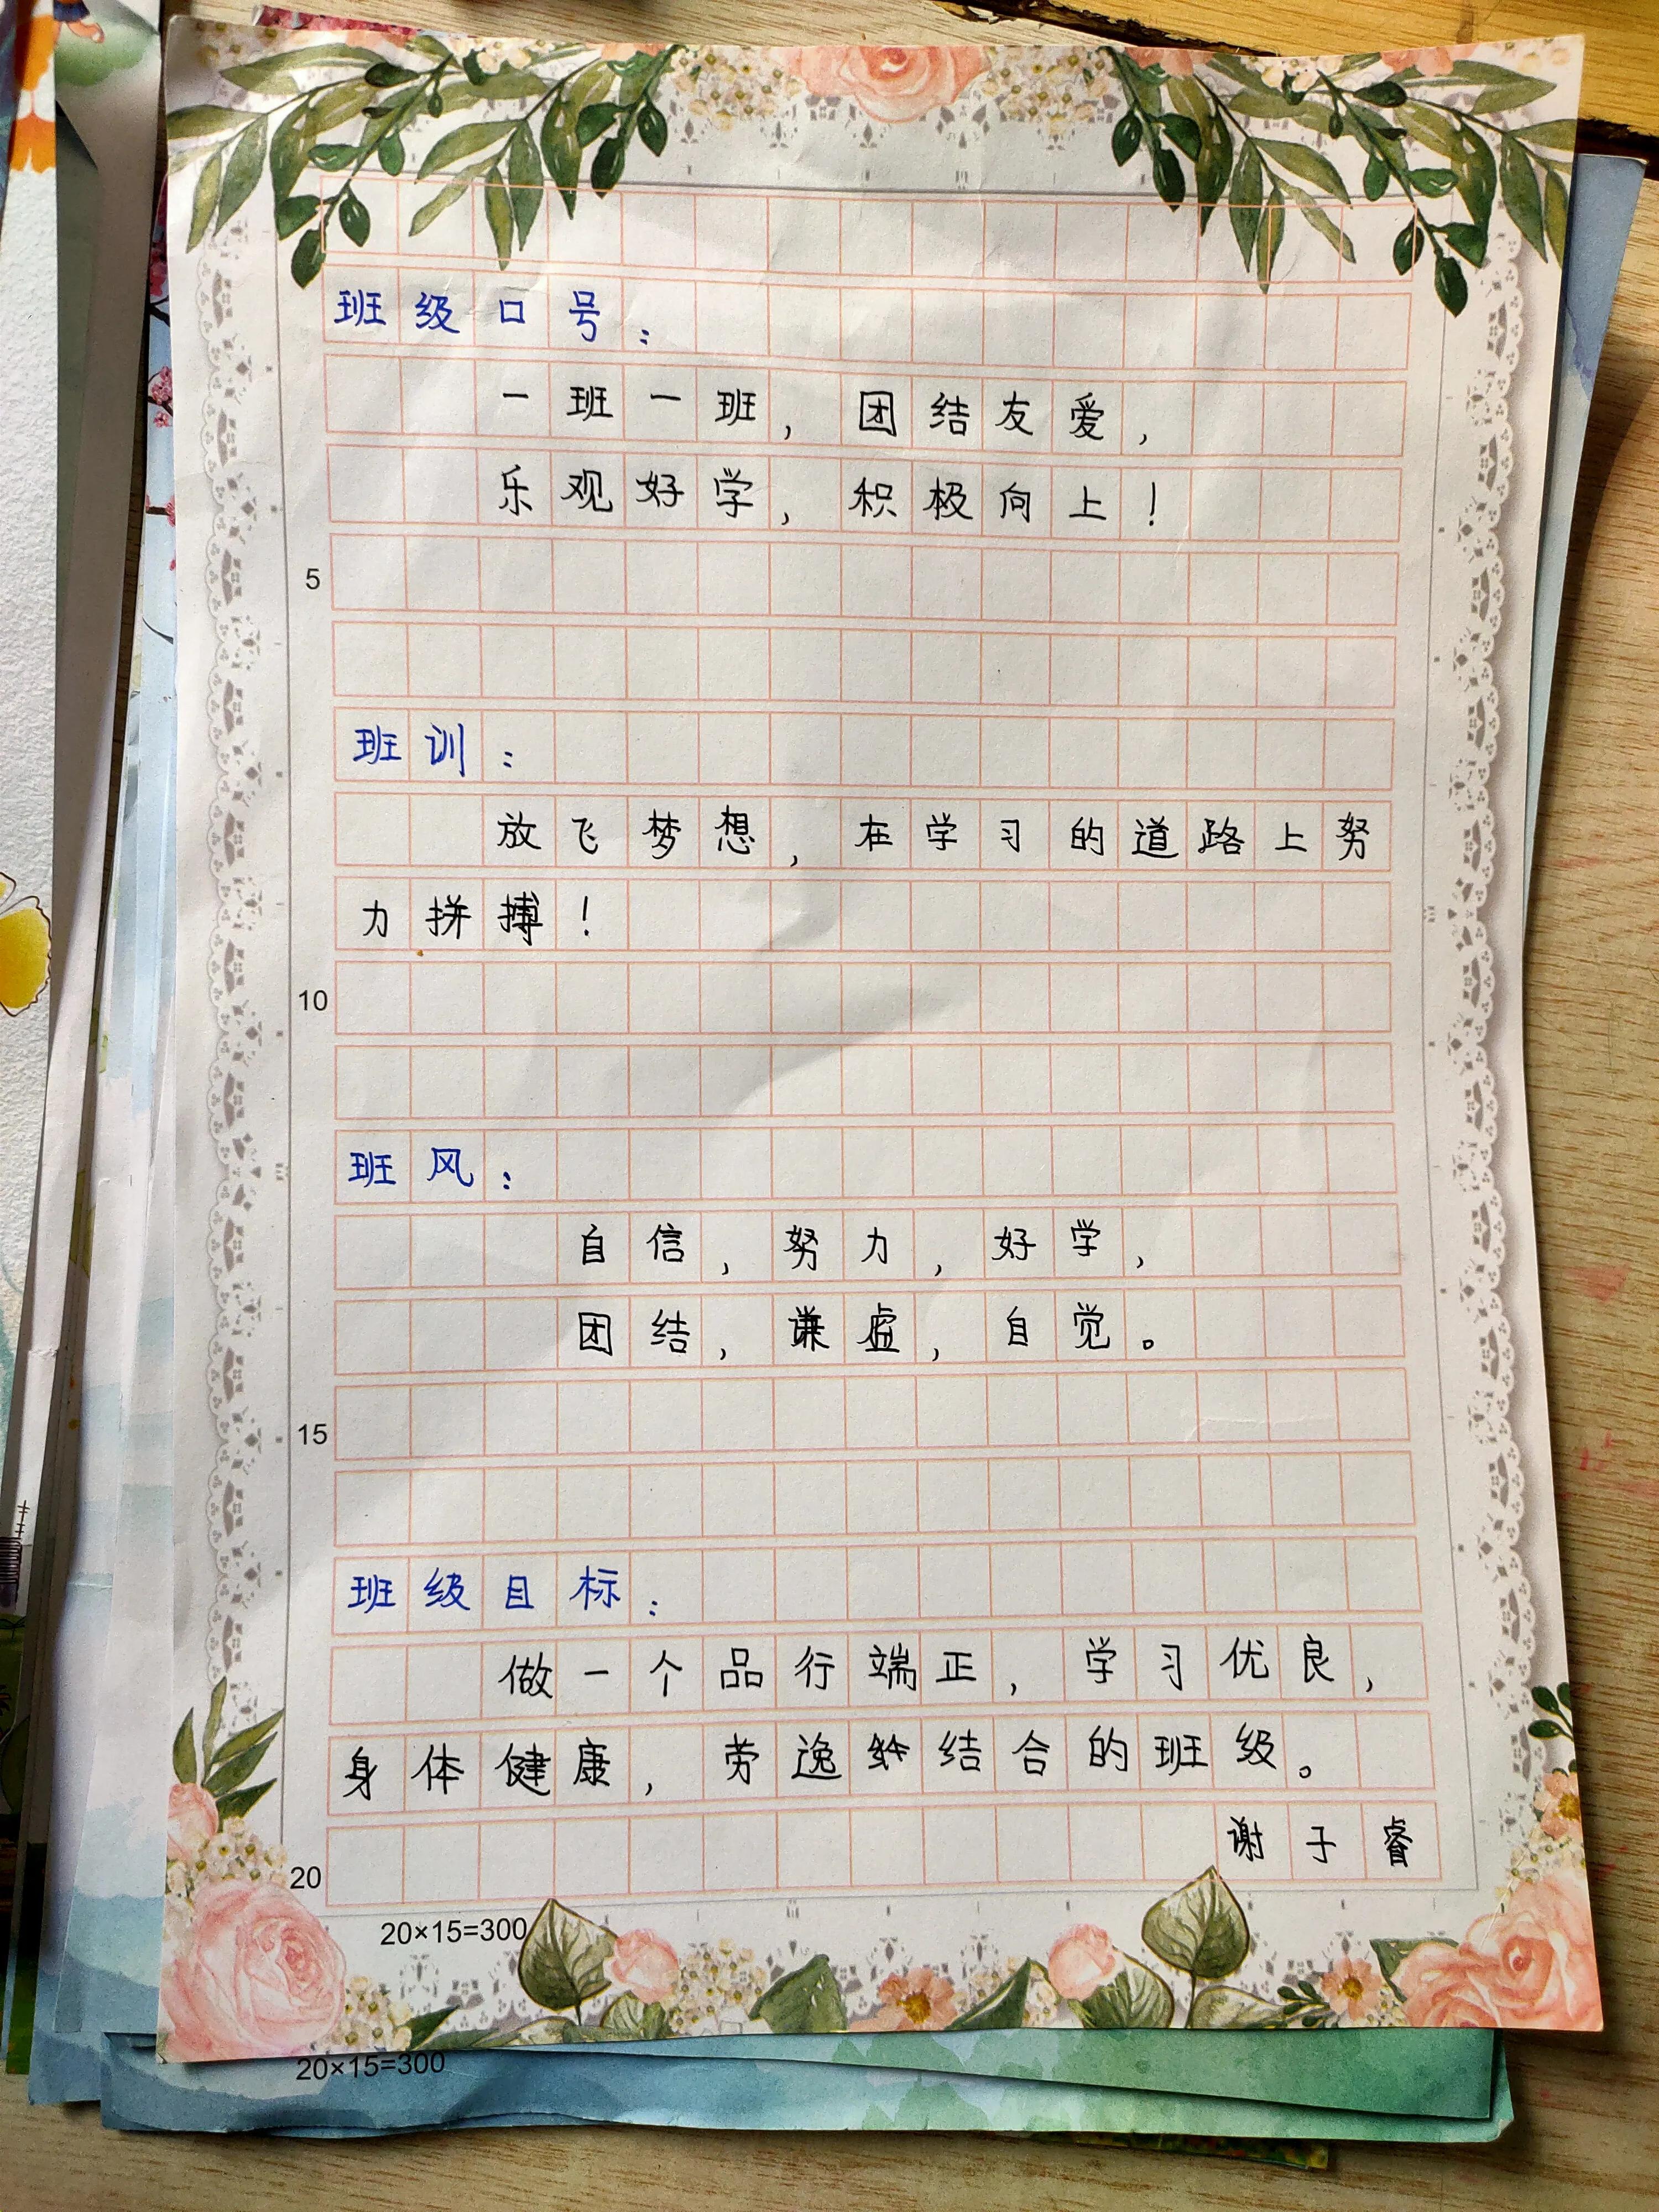 班级口号：
一班一班，团结友爱，
乐观好学，积极向上！
5
班训：
放飞梦想，在学习的道路上努
力拼搏！
10
班风：
自信，努力，好学，
团结，谦虚，自觉。
15
班级目标：
做一个品行端正，学习优良，
身体健康，劳逸结合的班级。
谢子睿
20
20×15=300
20×15=300